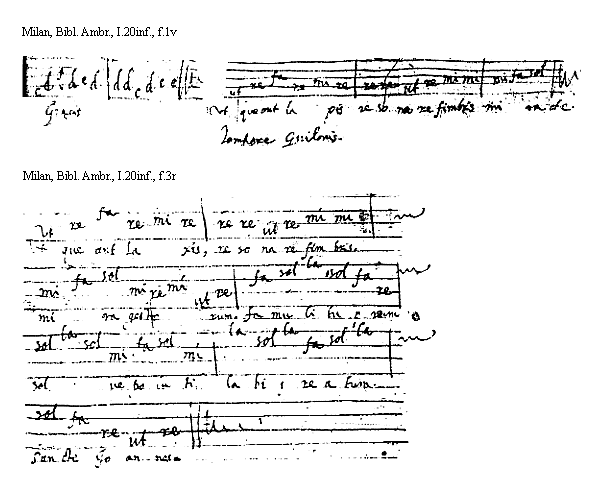 Milan, Bibl. Ambr., I.20inf., f.1v
c d f d e d d d c d e e
ut re fa re mi re re re ut re mi mi mi fa sol
Ut queant la pis re so na re fimbris mi ra etc
Milan, Bibl. Ambr., I.20inf., f.3r
Ut re fa re mi re re re ut re mi mi
que ant la pis, re so na re fim bris.
mi fa sol mi re mi ut re fa sol la sol fa re
mi ra rum fa mu li
sol la sol mi fa sol mi la sol la sol fa sol la
sol la bi i re a tum
sol fa re ut re
San cte Io an nes